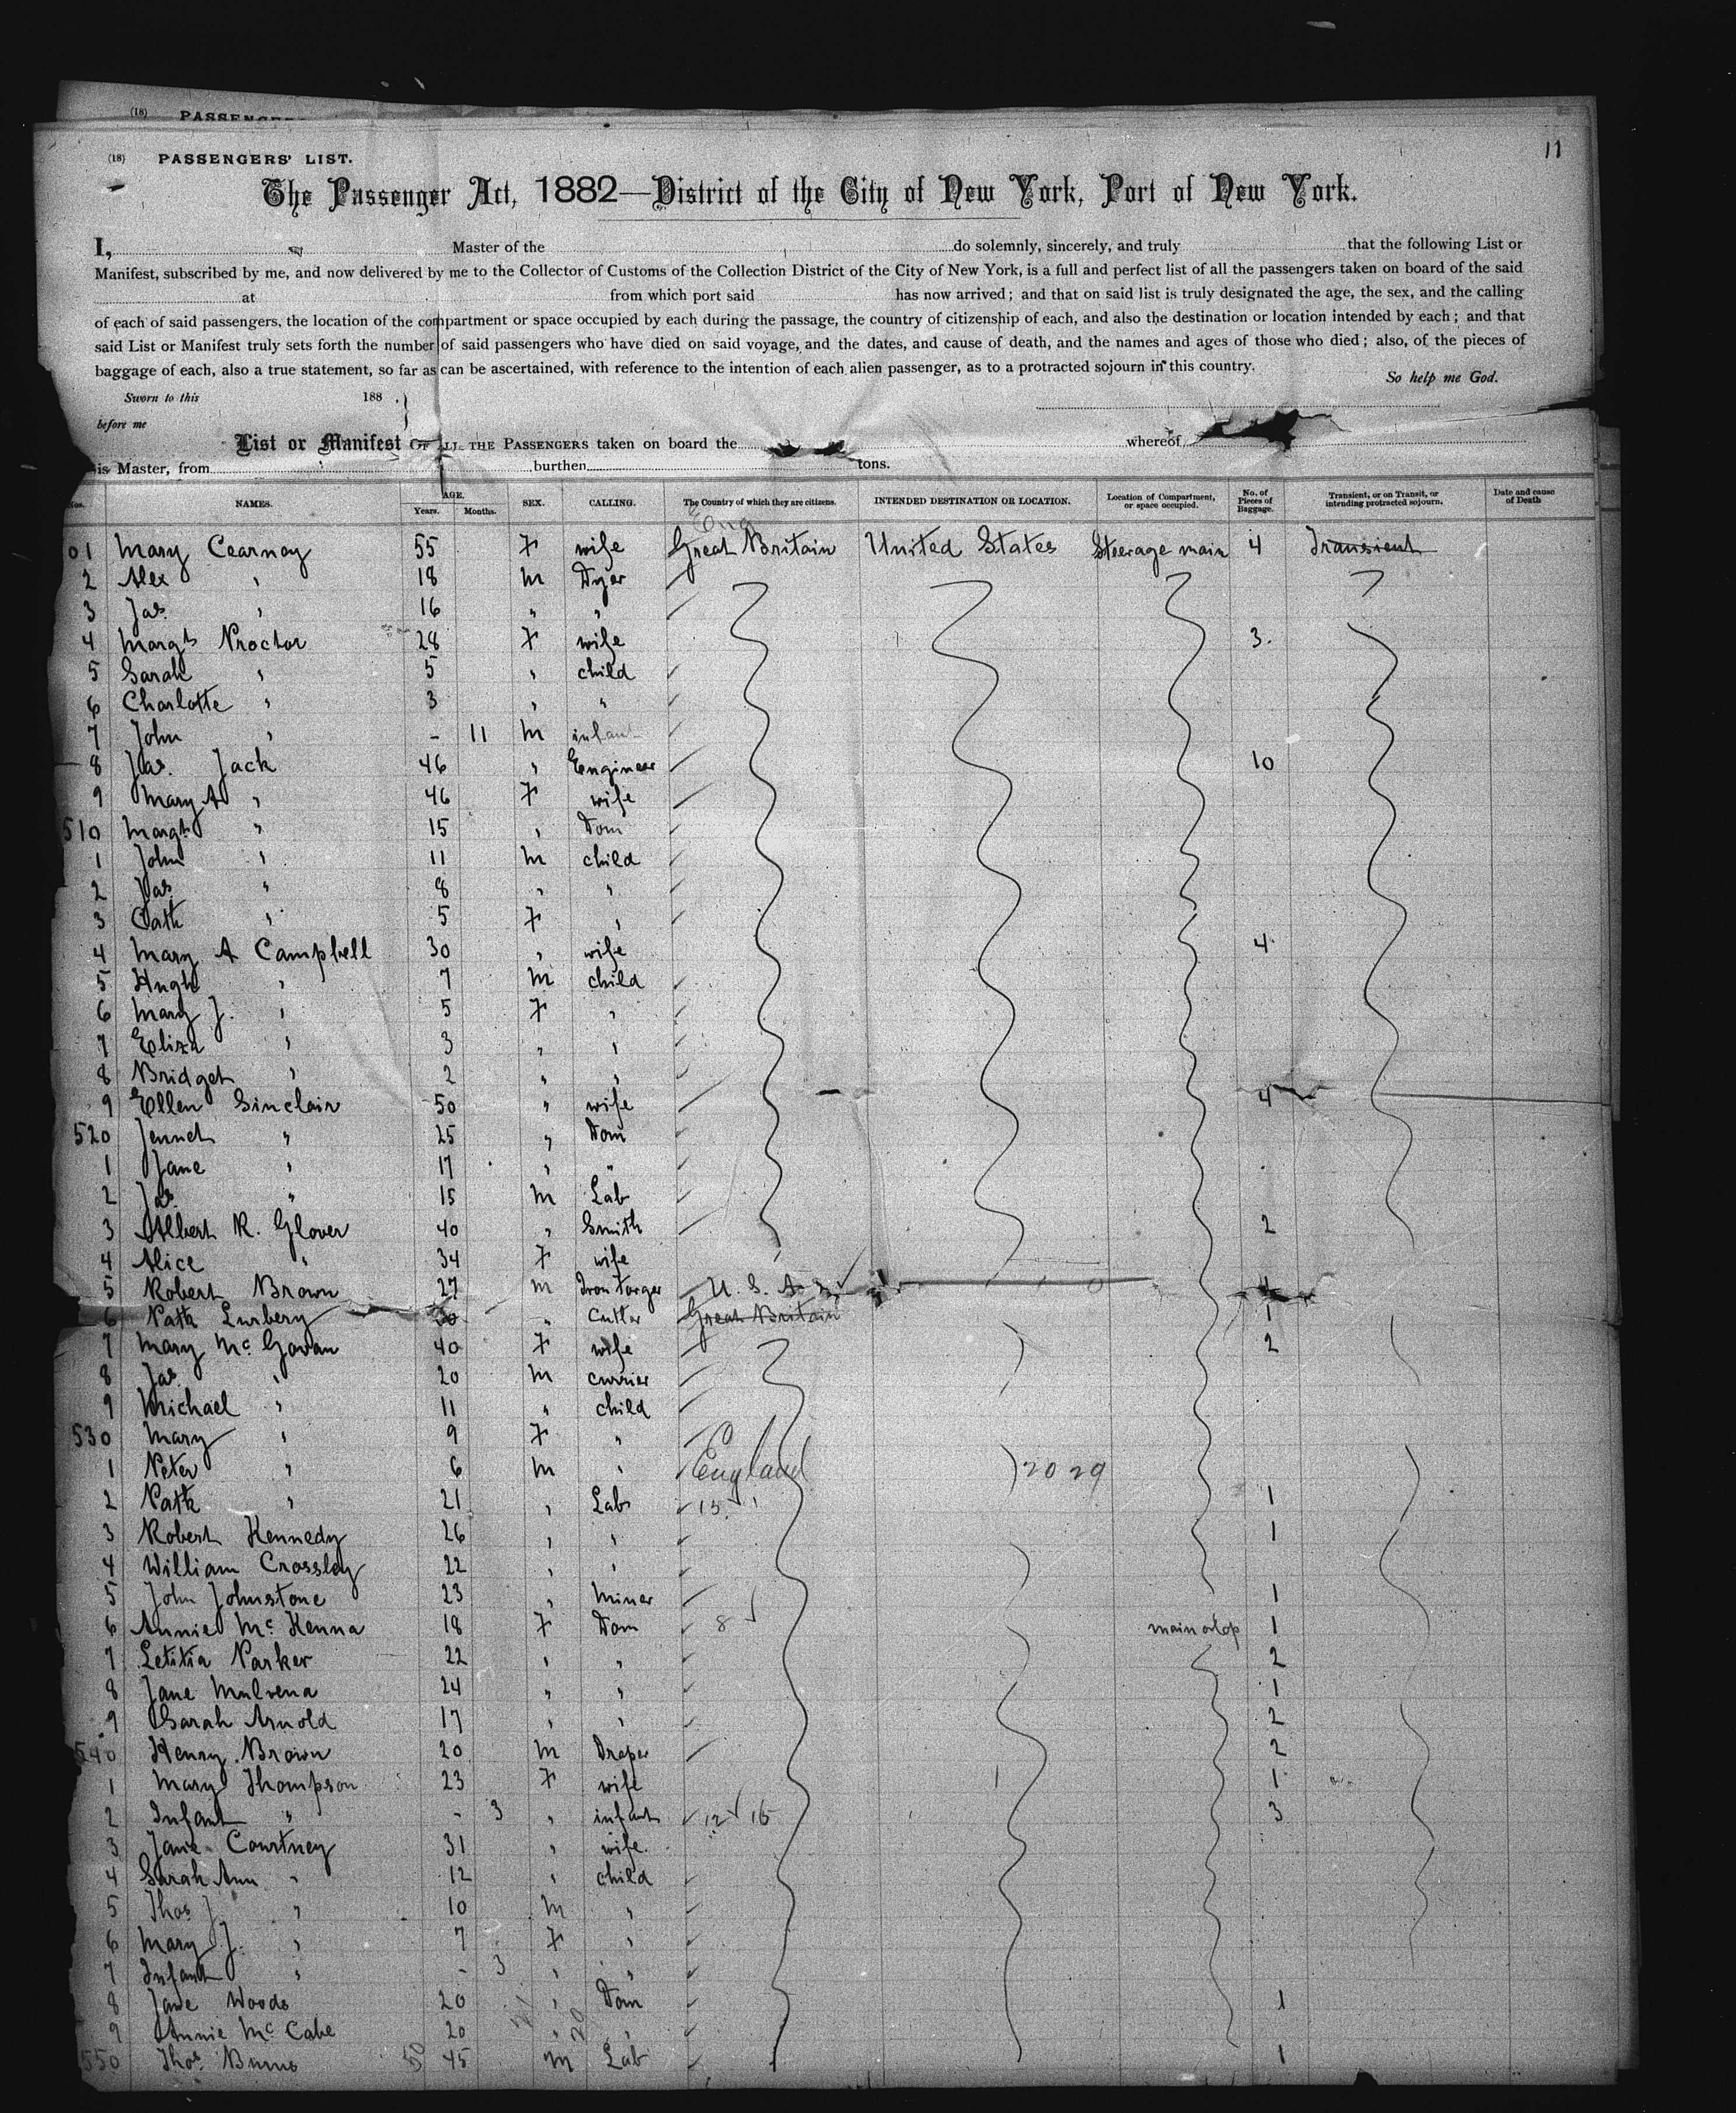 (18) PASSENGER
(18) PASSENGERS' LIST.
11
The Passenger Act, 1882—District of the City of New York, Port of New York.
I, Master of the do solemnly, sincerely, and truly that the following List or
Manifest, subscribed by me, and now delivered by me to the Collector of Customs of the Collection District of the City of New York, is a full and perfect list of all the passengers taken on board of the said
at from which port said has now arrived; and that on said list is truly designated the age, the sex, and the calling
of each of said passengers, the location of the compartment or space occupied by each during the passage, the country of citizenship of each, and also the destination or location intended by each; and that
said List or Manifest truly sets forth the number of said passengers who have died on said voyage, and the dates, and cause of death, and the names and ages of those who died; also, of the pieces of
baggage of each, also a true statement, so far as can be ascertained, with reference to the intention of each alien passenger, as to a protracted sojourn in this country.
So help me God.
Sworn to this 188 .
before me
List or Manifest OF ALL THE PASSENGERS taken on board the whereof
is Master, from burthen tons.
Nos. NAMES. AGE. Years. Months. SEX. CALLING. The Country of which they are citizens. INTENDED DESTINATION OR LOCATION. Location of Compartment, or space occupied. No. of Pieces of Baggage. Transient, or on Transit, or intending protracted sojourn. Date and cause of Death
Eng
01 Mary Cearney 55 F wife Great Britain United States Steerage main 4 Transient
2 Alex " 18 M Dyer
3 Jas. " 16 " "
4 Margt Proctor 28 F wife 3.
5 Sarah " 5 " child
6 Charlotte " 3 " "
7 John " - 11 M infant
8 Jas. Jack 46 " Engineer 10
9 Mary A " 46 F wife
510 Margt " 15 " Dom
1 John " 11 M child
2 Jas " 8 " "
3 Cath " 5 F "
4 Mary A Campbell 30 " wife 4
5 Hugh " 7 M child
6 Mary J. " 5 F "
7 Eliza " 3 " "
8 Bridget " 2 " "
9 Ellen Sinclair 50 " wife 4
520 Jennet " 25 " Dom
1 Jane " 17 " "
2 Jas. " 15 M Lab
3 Albert R. Glover 40 " Smith 2
4 Alice " 34 F wife
5 Robert Brown 27 M Iron Forger U. S. A
6 Patk 30 " Cutler Great Britain 1
7 Mary Mc Govan 40 F wife 2
8 Jas. " 20 M currier
9 Michael " 11 " child
530 Mary " 9 F "
1 Peter " 6 M " England 20 29
2 Patk " 21 " Lab 15 1
3 Robert Kennedy 26 " " 1
4 William Crossley 22 " "
5 John Johnstone 23 " Miner 1
6 Annie Mc Kenna 18 F Dom 8 main orlop 1
7 Letitia Parker 22 " " 2
8 Jane Mulvena 24 " " 1
9 Sarah Arnold 17 " " 2
540 Henry Brown 20 M Draper 2
1 Mary Thompson 23 F wife 1
2 Infant " - 3 " infant 12 16 3
3 Jane Courtney 31 " wife
4 Sarah Ann " 12 " child
5 Thos J. " 10 M "
6 Mary J. " 7 F "
7 Infant " - 3 " "
8 Jane Woods 20 " Dom 1
9 Annie Mc Cabe 20 " "
550 Thos. Burns 50 45 M Lab 1